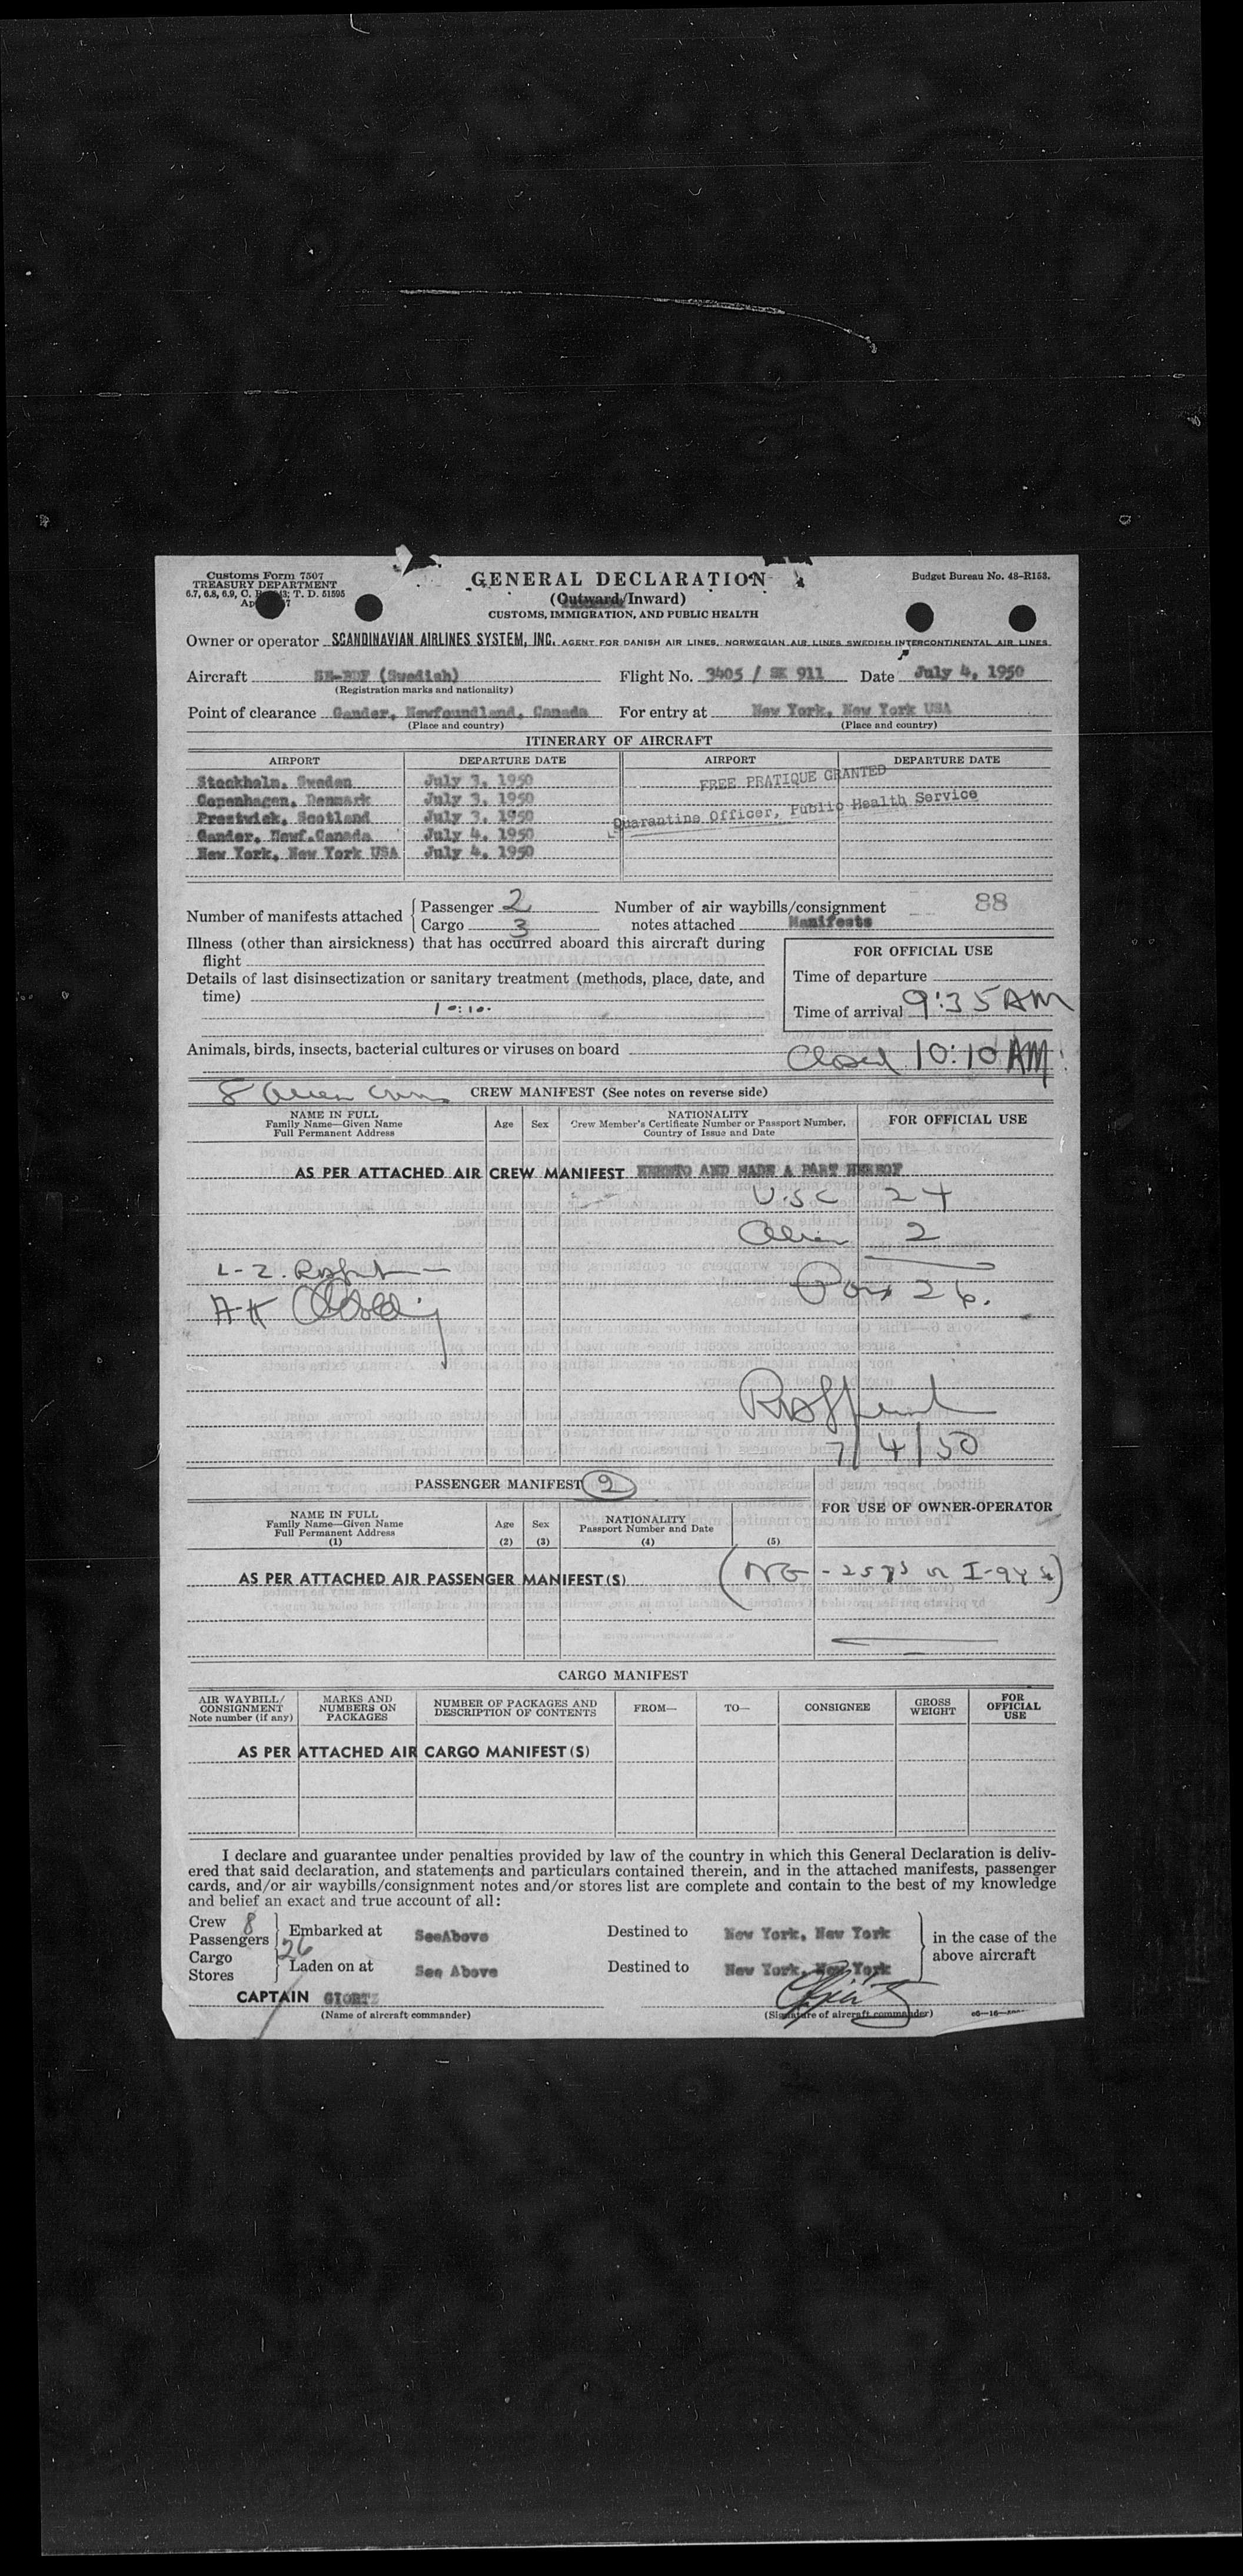 Customs Form 7507
TREASURY DEPARTMENT
6.7, 6.8, 6.9, C. T. D. 51595
GENERAL DECLARATION
(Outward/Inward)
CUSTOMS, IMMIGRATION, AND PUBLIC HEALTH
Budget Bureau No. 48-R153.
Owner or operator SCANDINAVIAN AIRLINES SYSTEM, INC. AGENT FOR DANISH AIR LINES, NORWEGIAN AIR LINES SWEDISH INTERCONTINENTAL AIR LINES
Aircraft SE-BDF (Swedish) Flight No. 3405 / SK 911 Date July 4, 1950
(Registration marks and nationality)
Point of clearance Gander, Newfoundland, Canada For entry at New York, New York USA
(Place and country) (Place and country)
ITINERARY OF AIRCRAFT
AIRPORT DEPARTURE DATE AIRPORT DEPARTURE DATE
Stockholm, Sweden July 3, 1950
FREE PRATIQUE GRANTED
Copenhagen, Denmark July 3, 1950
Prestwick, Scotland July 3, 1950
Quarantine Officer, Public Health Service
Gander, Newf.Canada July 4, 1950
New York, New York USA July 4, 1950
Number of manifests attached Passenger 2 Number of air waybills/consignment 88
Cargo 3 notes attached Manifests
Illness (other than airsickness) that has occurred aboard this aircraft during
flight
FOR OFFICIAL USE
Details of last disinsectization or sanitary treatment (methods, place, date, and
time)
Time of departure
10:10.
Time of arrival 9:35 AM
Animals, birds, insects, bacterial cultures or viruses on board
Closed 10:10 AM
8 Alien Crew CREW MANIFEST (See notes on reverse side)
NAME IN FULL
Family Name—Given Name
Full Permanent Address
Age Sex
NATIONALITY
Crew Member's Certificate Number or Passport Number,
Country of Issue and Date
FOR OFFICIAL USE
AS PER ATTACHED AIR CREW MANIFEST HERETO AND MADE A PART HEREOF
U.S.C 24
Alien 2
Pax 26.
7/4/50
PASSENGER MANIFEST 2
NAME IN FULL
Family Name—Given Name
Full Permanent Address
(1)
Age
(2)
Sex
(3)
NATIONALITY
Passport Number and Date
(4)
(5)
FOR USE OF OWNER-OPERATOR
AS PER ATTACHED AIR PASSENGER MANIFEST(S)
CARGO MANIFEST
AIR WAYBILL/
CONSIGNMENT
Note number (if any)
MARKS AND
NUMBERS ON
PACKAGES
NUMBER OF PACKAGES AND
DESCRIPTION OF CONTENTS
FROM— TO— CONSIGNEE
GROSS
WEIGHT
FOR
OFFICIAL
USE
AS PER ATTACHED AIR CARGO MANIFEST(S)
I declare and guarantee under penalties provided by law of the country in which this General Declaration is deliv-
ered that said declaration, and statements and particulars contained therein, and in the attached manifests, passenger
cards, and/or air waybills/consignment notes and/or stores list are complete and contain to the best of my knowledge
and belief an exact and true account of all:
Crew 8
Passengers 26
Embarked at SeeAbove Destined to New York, New York
Cargo
Stores
Laden on at See Above Destined to New York, New York
in the case of the
above aircraft
CAPTAIN GIORTZ
(Name of aircraft commander) (Signature of aircraft commander)